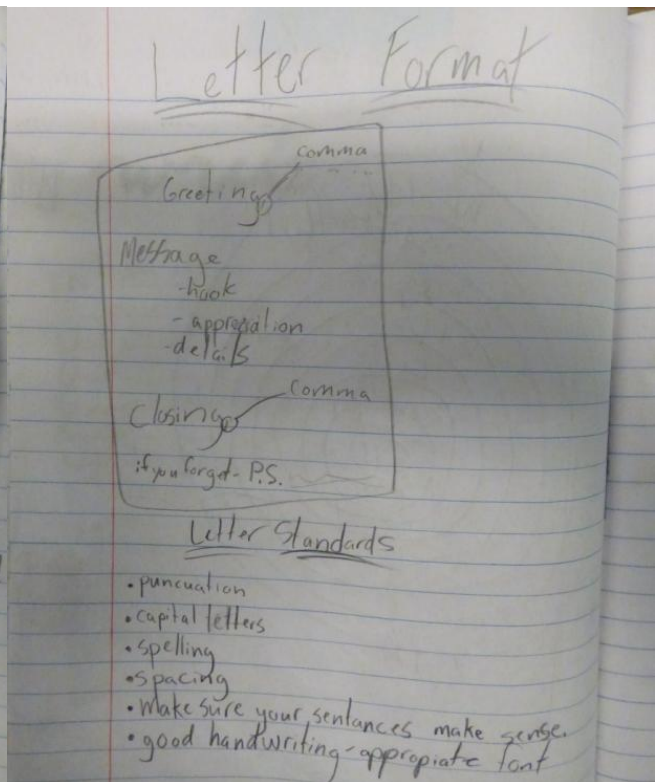 Letter Format
comma
Greeting,
Message
-hook
- appreciation
-details
comma
Closing,
if you forget- P.S.
Letter Standards
• puncuation
• capital letters
• spelling
• spacing
• Make sure your sentances make sense.
• good handwriting-appropiate font